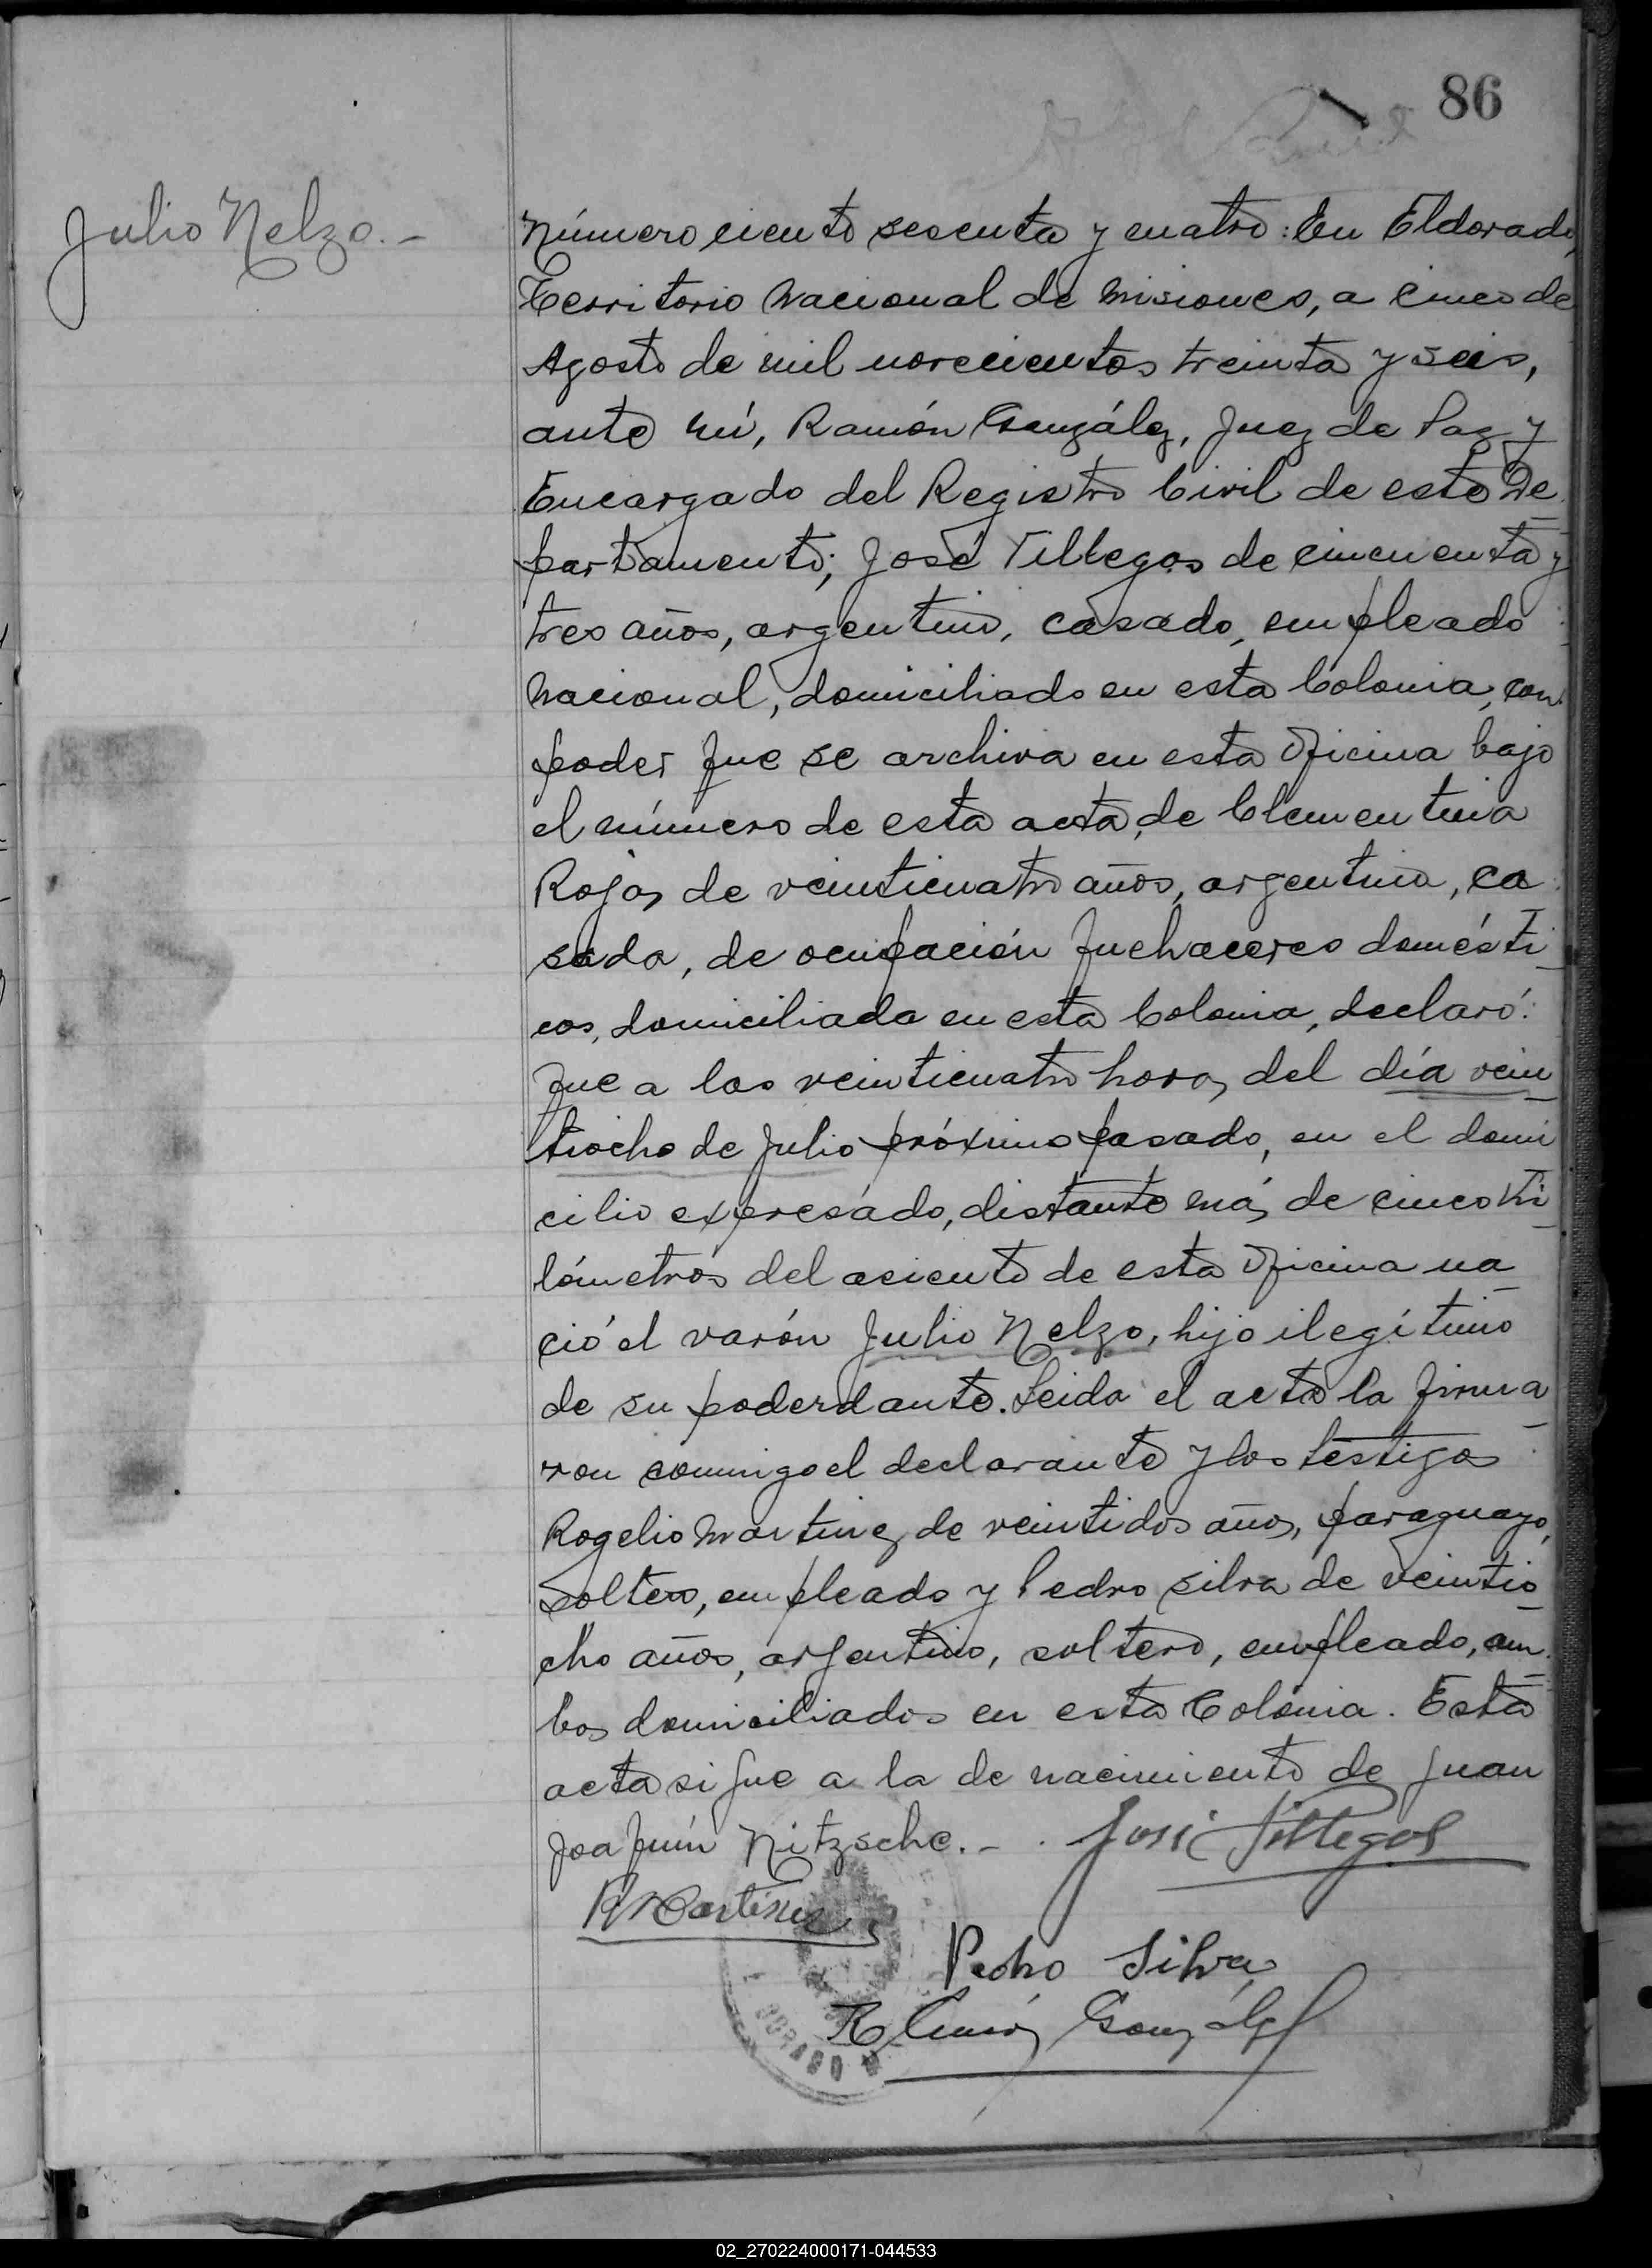 86
Julio Nelzo.-
Número ciento sesenta y cuatro: En Eldorado,
Territorio Nacional de Misiones, a cinco de
Agosto de mil novecientos treinta y seis,
ante mí, Ramón González, Juez de Paz y
Encargado del Registro Civil de este De
partamento; José Villegas de cincuenta y
tres años, argentino, casado, empleado
Nacional, domiciliado en esta Colonia, con
poder que se archiva en esta Oficina bajo
el número de esta acta, de Clementina
Rojas de veinticuatro años, argentina, ca
sada, de ocupación quehaceres domésti
cos, domiciliada en esta Colonia, declaró:
Que a las veinticuatro horas del día vein
tiocho de Julio próximo pasado, en el domi
cilio expresado, distante más de cinco ki
lómetros del asiento de esta Oficina na
ció el varón Julio Nelzo, hijo ilegítimo
de su poderdante. Leida el acta la firma
ron conmigo el declarante y los testigos
Rogelio Martinez de veintidos años, paraguayo,
soltero, empleado y Pedro Silva de veintio
cho años, argentino, soltero, empleado, am
bos domiciliados en esta Colonia. Esta
acta sigue a la de nacimiento de Juan
Joaquín Nitzsche.-. José Villegas
R Martínez
Pedro Silva
Ramón González
DORADO
02_270224000171-044533